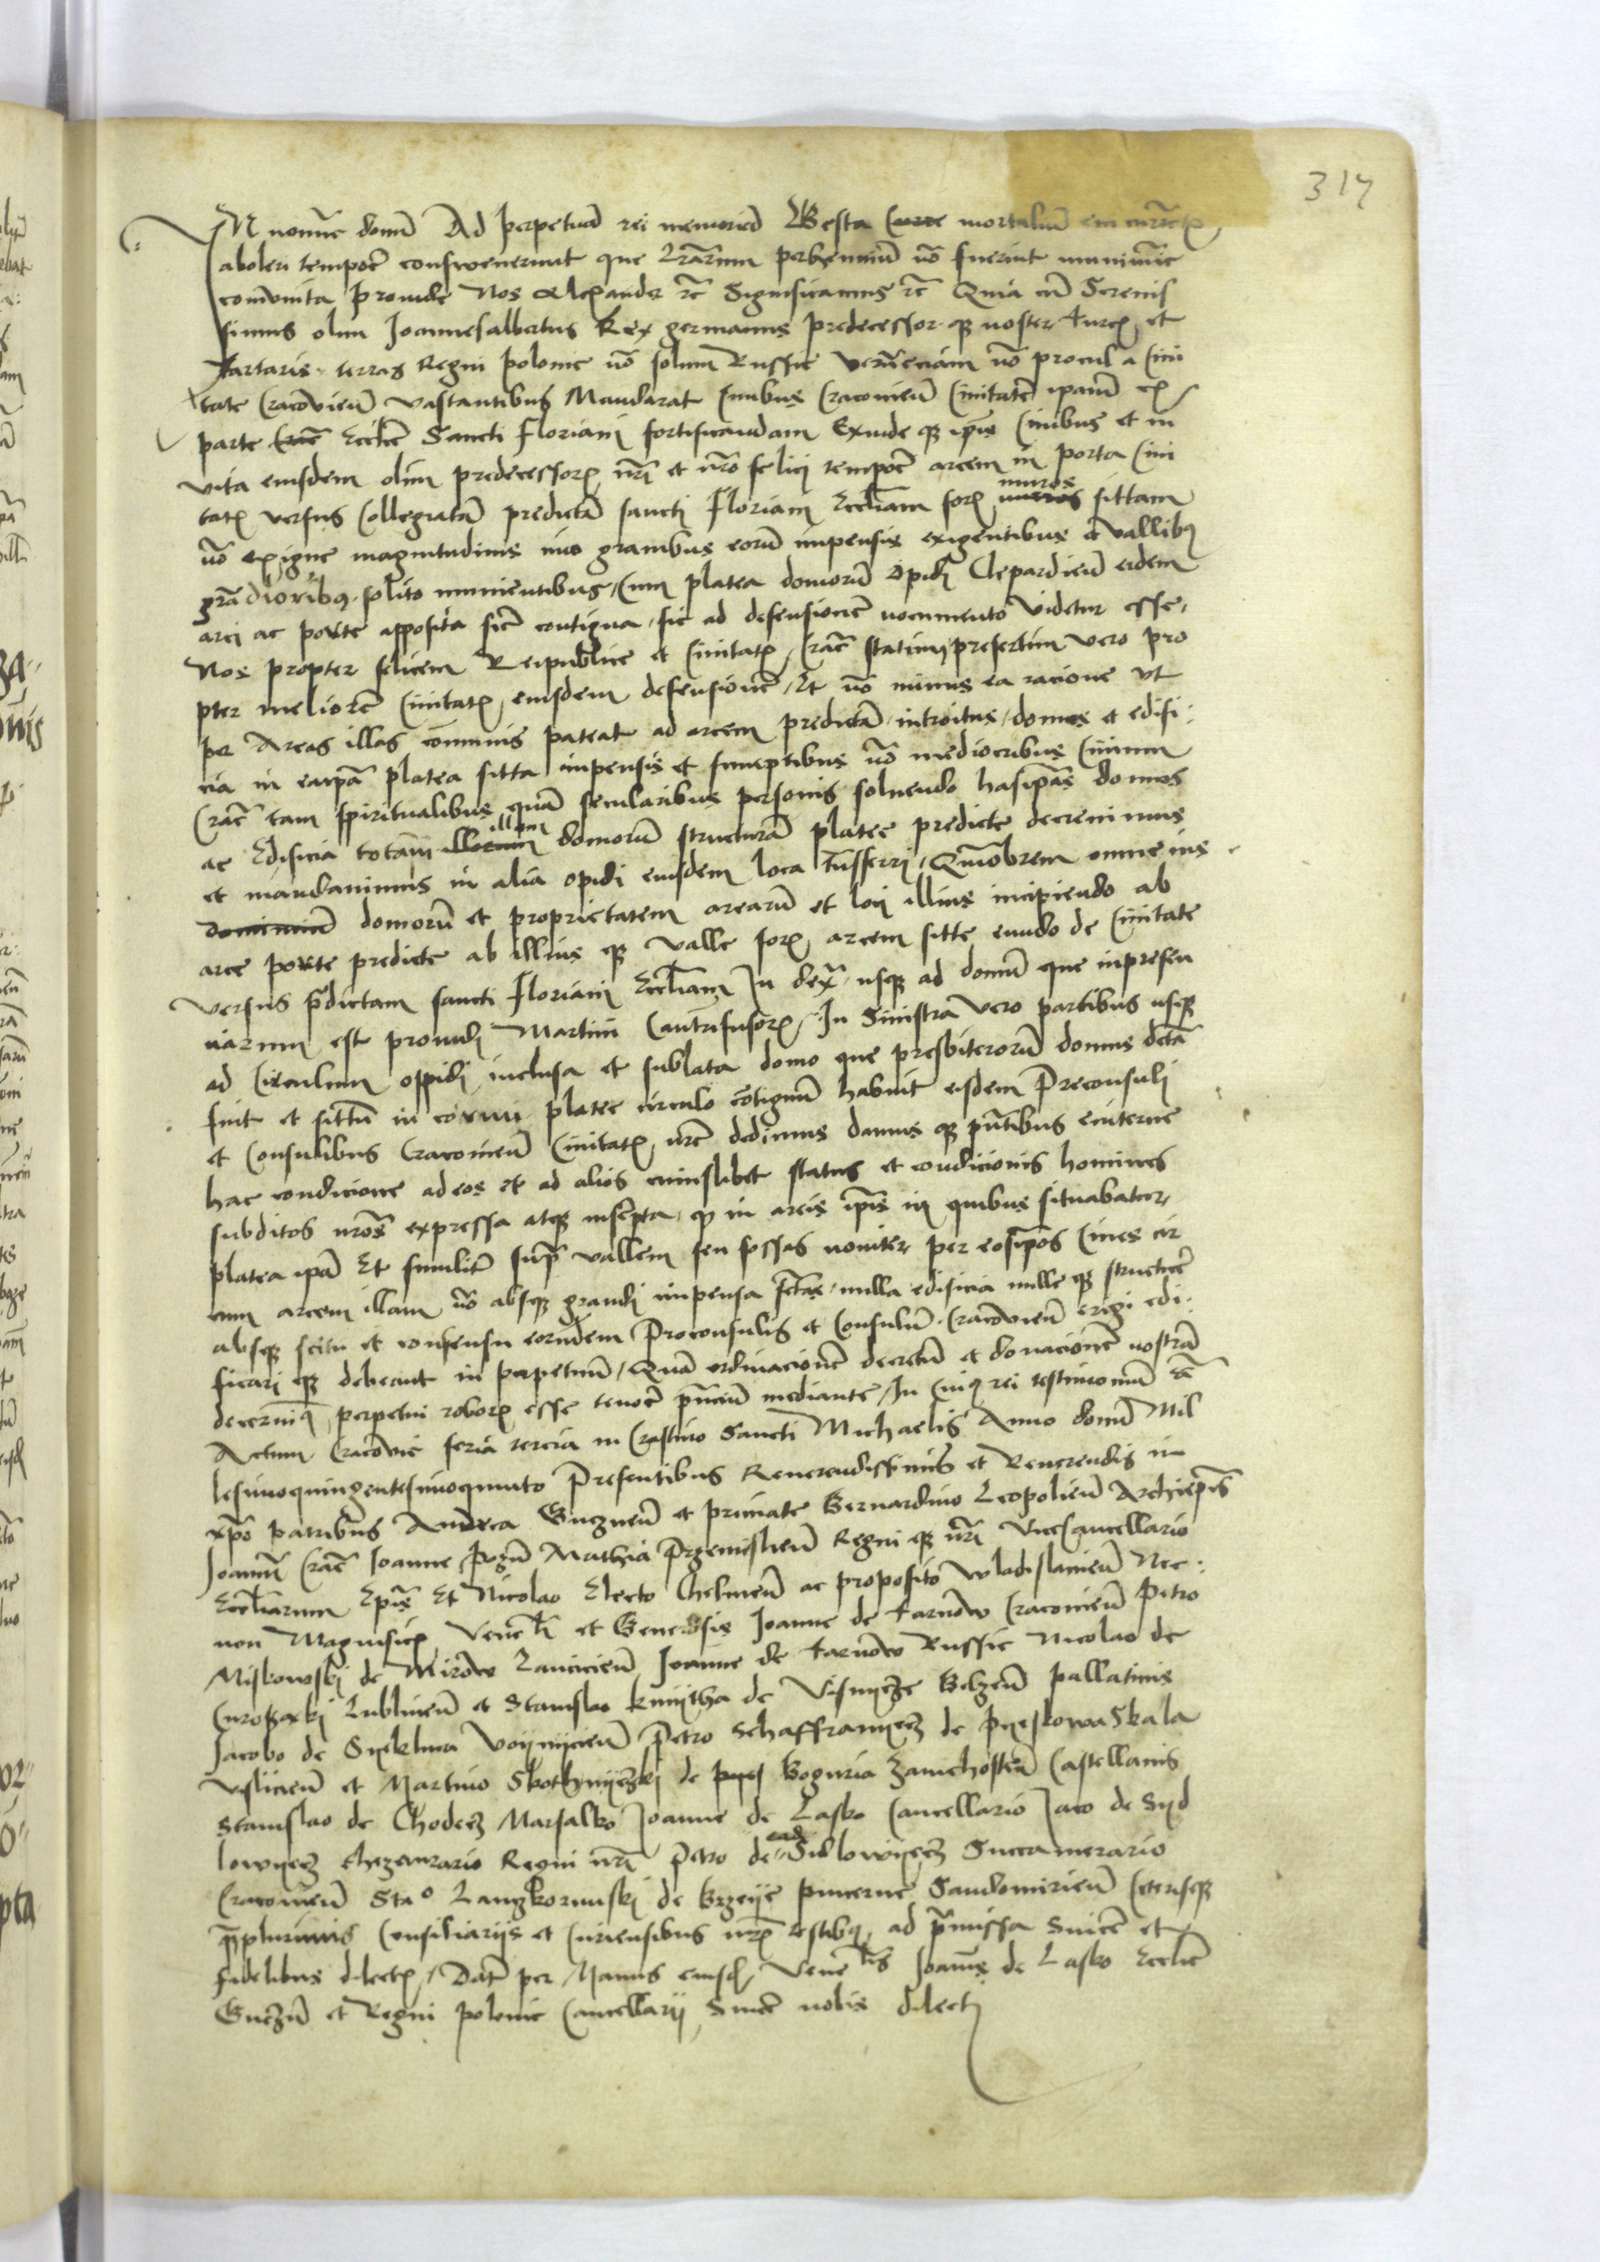 317
In nomine domini Ad perpetuam rei memoriam Gesta mortalium
aboleri tempore consueverunt que lrarum perhennium no fuerint munimine
comunita Proinde Nos Alexander etc Significamus etc Quia cum Serenis
simus olim Joannesalbertus Rex germanus predecessor q noster turcis et
Tartaris terras Regni polonie no solum Russie verumeciam no procul a Civi
tate Cracoviens vastantibus Mandarat Civibus Cracoviens Civitatem ipam ex
parte Ecclie Sancti Floriani fortificandam Exinde q ipis Civibus et in
vita eiusdem olim predecessoris nri et nro felici tempore arcem in porta Civi
tatis versus Collegiatam predictam sancti Floriani Eccliam foris muros sittam
no exigue magnitudinis gravibus eorum impensis exigentibus et vallibus
grandioribus solito munientibus Cum platea domorum opidi Clepardiens eidem
arci ac porte apposita sicut contigua sic ad defensionem nocumento videtur esse
Nos propter felicem Reipublice et Civitatis Crac statum presertim vero pro
pter meliorem Civitatis eiusdem defensionem Et no minus ea racione ut
per Areas illas communis pateat ad arcem predictam introitus domos et edifi
cia in eaipa platea sitta impensis et sumptibus no mediocribus Civium
Crac tam spiritualibus quam secularibus personis solvendo hasipas domos
ac Edificia totam illorum illam domorum structuram platee predicte decrevimus
et mandavimus in alia opidi eiusdem loca transferri Quamobrem omne ius
dominium domorum et proprietatem arearum et loci illius incipiendo ab
arce porte predicte ab illius q valle foris arcem sitte eundo de Civitate
versus predictam sancti Floriani Eccliam In dextra usq ad domum que inpresen
ciarum est providi Martini Cantrifusoris In Sinistra vero partibus usq
ad Circulum oppidi inclusa et sublata domo que presbiterorum domus dicta
fuit et sittum in cornu platee circulo contiguum habuit eisdem Preconsuli
et Consulibus Cracoviens Civitatis nre dedimus damus q pntibus eviterne
hac condicione ad eos et ad alios cuiuslibet status et condicionis homines
subditos nros expressa atq inscripta q in areis ipis in quibus situabatur
platea ipa Et similiter supra vallem seu fossas noviter per eosipos Cives cir
cum arcem illam no absq grandi impensa factas nulla edificia nulle q structure
absq scitu et consensu eorundem Proconsulis et Consulum Cracoviens erigi edi
ficari q debeant in perpetuum Quam ordinacionem decretum et donacionem nostram
decernimus perpetui roboris esse tenore pncium mediante In Cuius rei testimonium etc
Actum Cracovie feria tercia in Crastino Sancti Michaelis Anno domini Mil
lesimoquingentesimoquinto Presentibus Reverendissimis et Reverendis in
xpo patribus Andrea Gneznens et primate Bernardino Leopoliens Archiepis
Joanne Crac Joanne Pozn Mathia Przemisliens Regni q nri Vicecancellario
Eccliarum Epis Et Nicolao Electo Chelmens ac preposito Wladislaviens Nec
non Magnificis Venebli et Generosis Joanne de Tarnow Cracoviens Petro
Miskowski de Mirow Lanciciens Joanne de Tarnow Russie Nicolao de
Curozwaki Lubliniens et Stanislao kmijtha de Visnijcze Belzens pallatinis
Jacobo de Syeklma Voijnijciens Petro Schaffranyecz de PyeskowaSkala
vsliciens et Martino Skothnijczki de Boguria Zawichostens Castellanis
Stanislao de Chodecz Marsalko Joanne de Lasko Cancellario Jaco de Syd
lowyecz thezaurario Regni nri Petro de ead Sidlowyecz Succamerario
Cracoviens Stao Lanczkorunski de Brzezije pincerne Sandomiriens Ceterisq
qplurimis Consiliariis et Curiensibus nris testibus ad premissa Sincere et
fidelibus dilectis Datum per Manus eiusd Veneblis Joannis de Lasko Ecclie
Gneznens et Regni polonie Cancellarij Sincere nobis dilecti